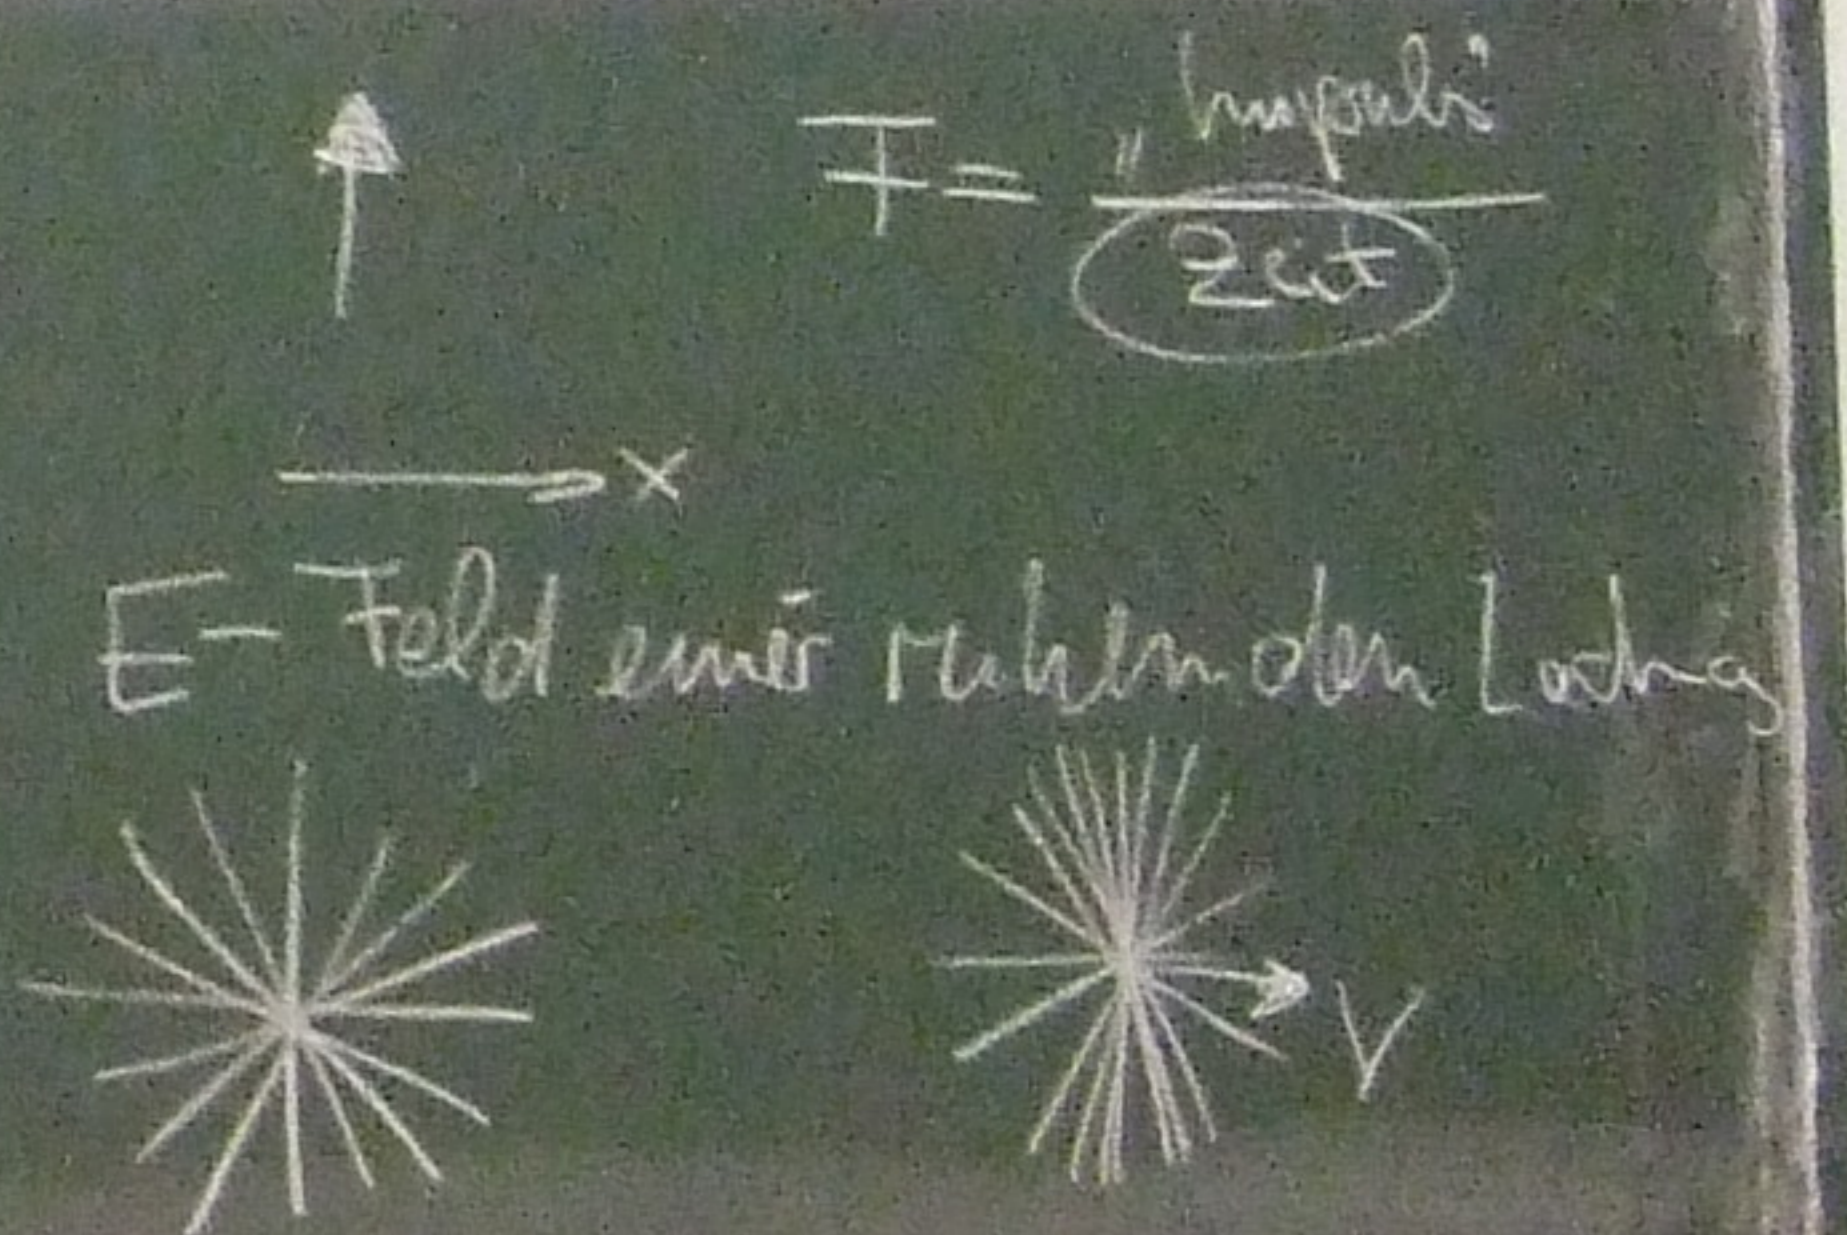 F = „Impuls“
Zeit
x
E-Feld einer ruhenden Ladung
V